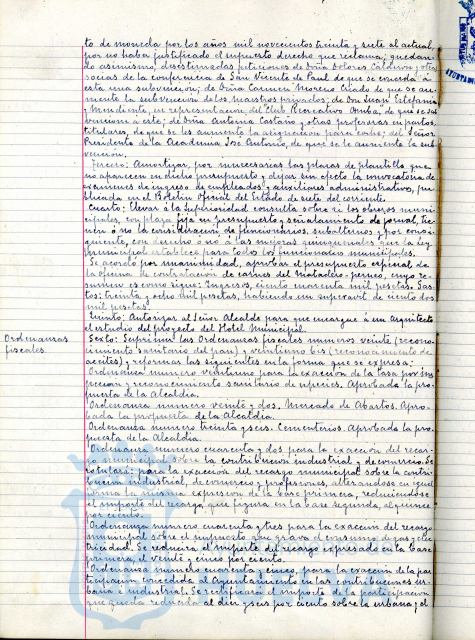 to de moneda por los años mil novecientos treinta y siete al actual,
por no haber justificado el supuesto derecho que reclama; quedan-
do asimismo, desestimadas peticiones de Doña Dolores Calderon y otras
socias de la conferencia de San Vicente de Paul de que se conceda á
esta una subvencion; de Doña Carmen Moreno Criado de que se au-
mente la subvencion de los maestros privados; de Don Juan
y Mendiente, en representacion del Club Recreativo Onuba, de que se sub-
vencione á este; de Doña Antonia Castaño y otras profesoras en partos
titulares, de que se les aumente la asignacion para coche; del Señor
Presidente de la Academia Jose Antonio, de que se le aumente la sub-
vencion.
Tercero: Amortizar, por innecesarias las plazas de plantilla que
no aparecen en dicho presupuesto y dejar sin efecto la convocatoria de
examenes de ingreso de empleados y auxiliares administrativos, pu-
blicada en el Boletin Oficial del Estado de siete del corriente.
Cuarto: Elevar a la Superioridad consulta sobre si los obreros muni-
cipales, con plaza fija en presupuesto y señalamiento de jornal, tie-
nen ó no la consideracion de funcionarios, subalternos y por consi-
guiente, con derecho o no a las mejoras quinquenales que la ley
municipal establece para todos los funcionarios municipales.
Se acordó por unanimidad, aprobar el presupuesto especial de
la oficina de contratacion de carnes del Matadero- , cuyo re-
sumen es como sigue: Ingresos, ciento cuarenta mil pesetas. Gas-
tos: treinta y ocho mil pesetas, habiendo un superavit de ciento dos
mil pesetas.
Quinto: Autorizar al Señor Alcalde para que encargue á un arquitecto
el estudio del proyecto del Hotel Municipal.
Ordenanzas
fiscales.
Sexto: Suprimir las Ordenanzas fiscales numeros veinte (recono-
cimiento sanitario del pan) y veintiuno bis (reconocimiento de
aceites) y reformar las siguientes en la forma que se expresa:
Ordenanza numero veintiuno para la exaccion de la tasa por ins-
peccion y reconocimiento sanitario de especies. Aprobada la pro-
puesta de la Alcaldia.
Ordenanza numero veinte y dos. Mercado de Abastos. Apro-
bada la propuesta de la Alcaldia.
Ordenanza numero treinta y seis. Cementerios. Aprobada la pro-
puesta de la Alcaldia.
Ordenanza numero cuarenta y dos para la exaccion del recar-
go municipal sobre la contribucion industrial y de comercio. Se
titulará: para la exaccion del recargo municipal sobre la contri-
bucion industrial, de comercio y profesiones, alterandose en igual
forma la misma expresion de la base primera, reduciendose
el importe del recargo, que figura en la base segunda, al quince
por ciento.
Ordenanza numero cuarenta y tres para la exaccion del recargo
municipal sobre el impuesto que grava el consumo de gas y elec-
tricidad. Se reducirá el importe del recargo expresado en la base
primera, al veinte y cinco por ciento.
Ordenanza numero cuarenta y cinco, para la exaccion de la par-
ticipacion concedida al Ayuntamiento en las contribuciones ur-
bana é industrial. Se rectificará el importe de la participacion
que queda reducida al diez y seis por ciento sobre la urbana y el